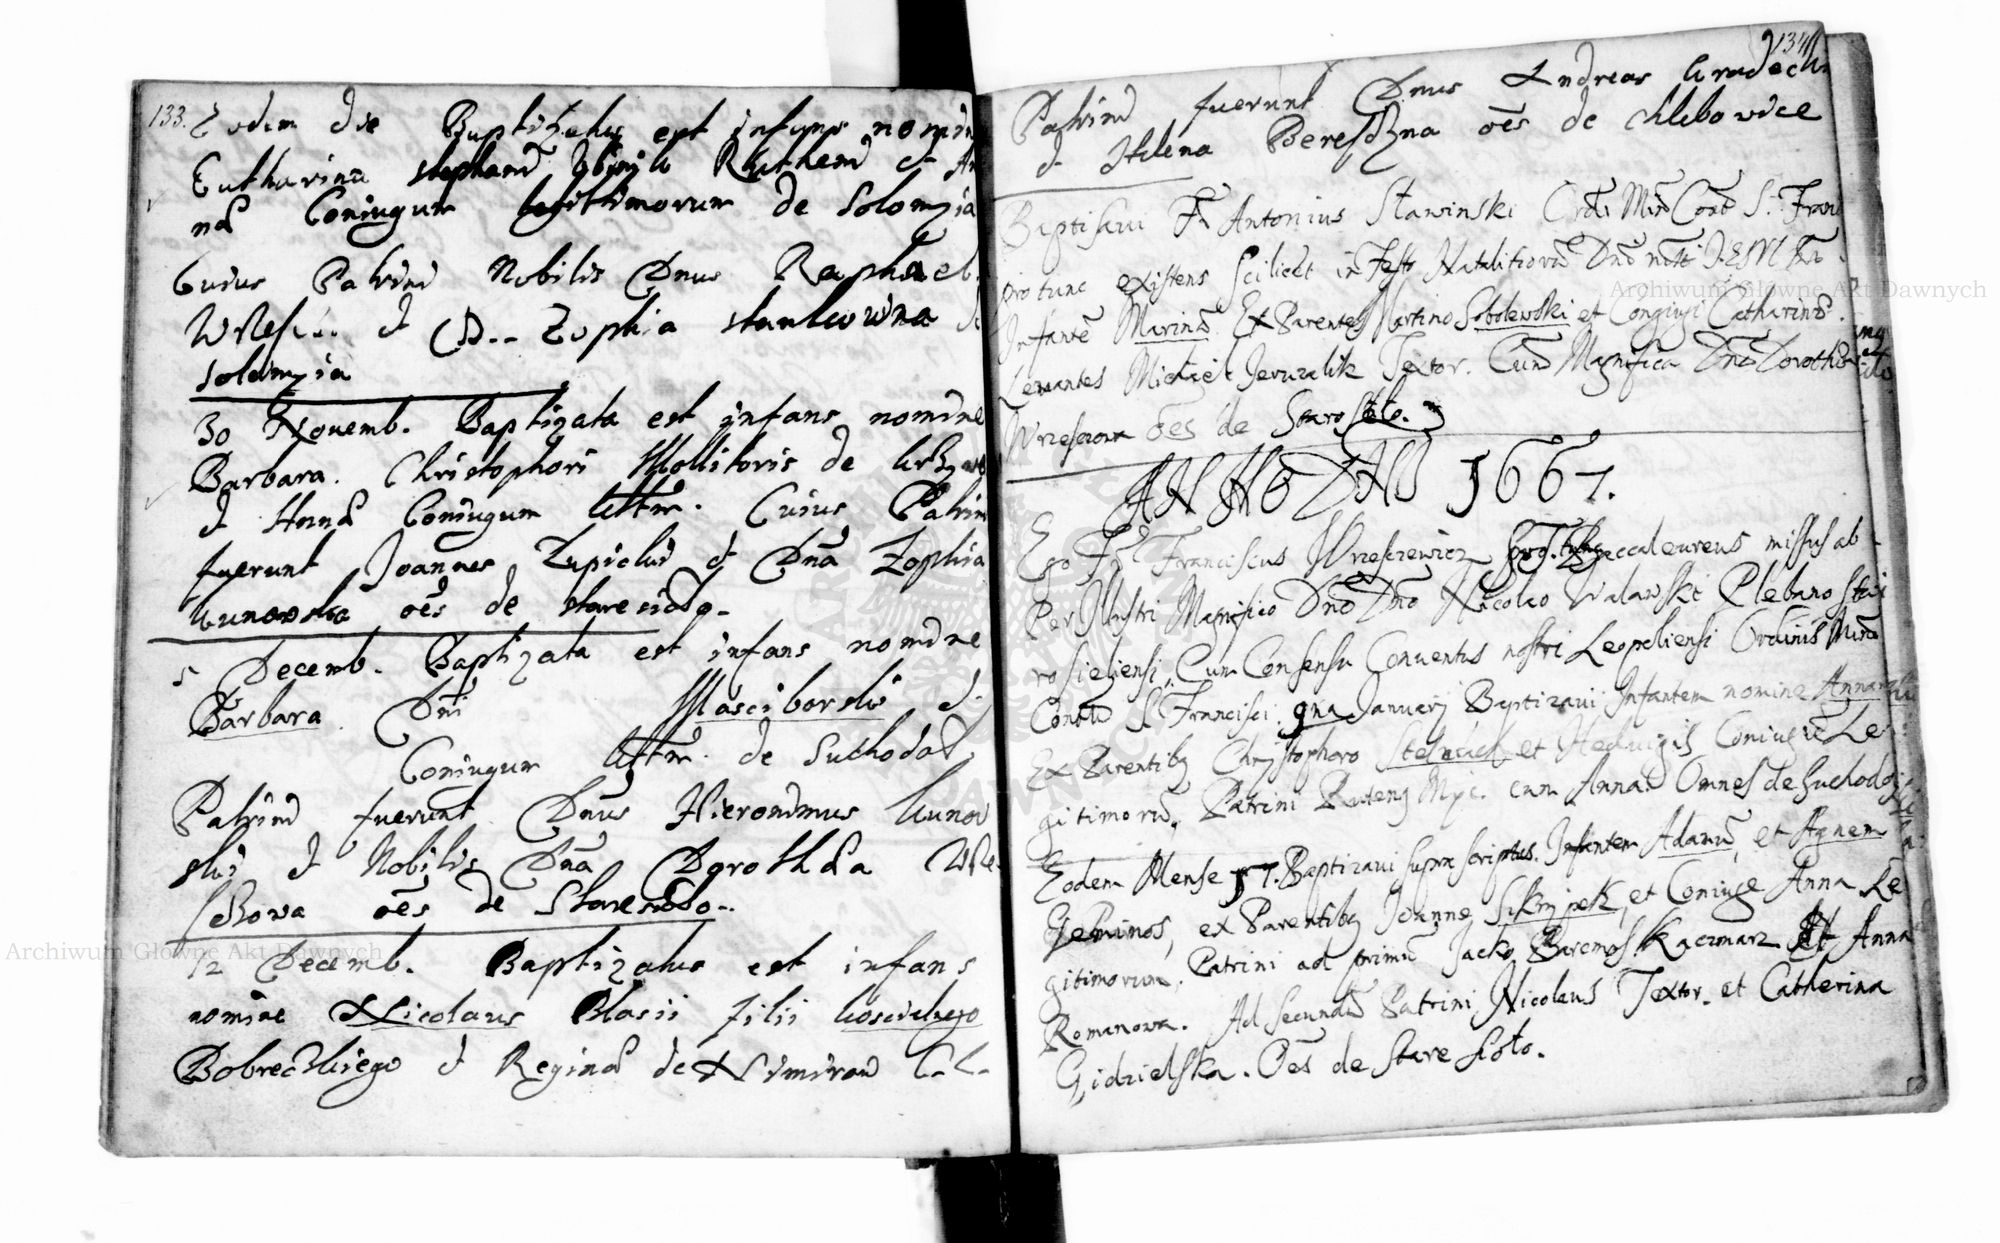 133.
Eodem die Baptizatus est infans nomine
Catharina Stephani Rutheni et An
na Coniugum legitimorum de Solomyia
Cuius Patrini Nobilis Dnus Raphael
et D-- Zophia Stankowna
Solomyia
30 Novemb. Baptizata est infans nomine
Barbara. Christophori Mollitoris de
et Anna Coniugum littm. Cuius Patrini
fuerunt Joannes et Dna Zophia
Cunowska oes de Staresiolo-
5 Decemb. Baptizata est infans nomine
Barbara Dni Masciborski et
Coniugum littm. de Suchodol
Patrini fuerunt Dnus Hieronimus Cunow
ski et Nobilis Dna Dorothea Wrze
schowa oes de Staresiolo--
12 Decemb. Baptizatus est infans
nomine Nicolaus Blasii filii
Bobreckiego et Regina de C. L.
134
Patrini fuerunt Dnus Andreas Gradecki
et Helena oes de Chlebowice
Baptisavi Fr. Antonius Stawinski Ordi Min Cont S. Fran
pro tunc existens scilicet in Festo Natalitiorum Dni nostri JESU
Infante Marina Ex Parentes Martino Sobolewski et Coniugi Catharina.
Levantes Michael Jeruzalik Textor. Cum Magnifica Dna Dorothea
Wrzescowa oes de Starosiolo.
ANNO DNI 1667.
Ego Fr. Franciscus Wrzesczewicz Baccalaureus missus ab
Per Illustri Magnifico Dno Dno Nicolao Plebano Sta
rosieliensi, Cum Consensu Conventus nostri Leopoliensi Ordinis Min
Cont S. Francisci. 9na Januarij Baptizavi Infantem nomine Annam
Ex Parentibq Chrystophoro et Hedwigis Coniugu Le
gitimoru. Patrini cum Anna Omnes de Suchodol
Eodem Mense 17. Baptizavi supra scriptus. Infantem Adamu, et Agnem
Geminos, ex Parentibq Joanne et Coniuge Anna Le
gitimorum. Patrini ad primu Jacko Kaczmarz Et Anna
Romanowa. Ad secundu Patrini Nicolaus Textor. et Catherina
Gidzielska. Oes de Stare siolo.
Archiwum Główne Akt Dawnych
Archiwum Główne Akt Dawnych